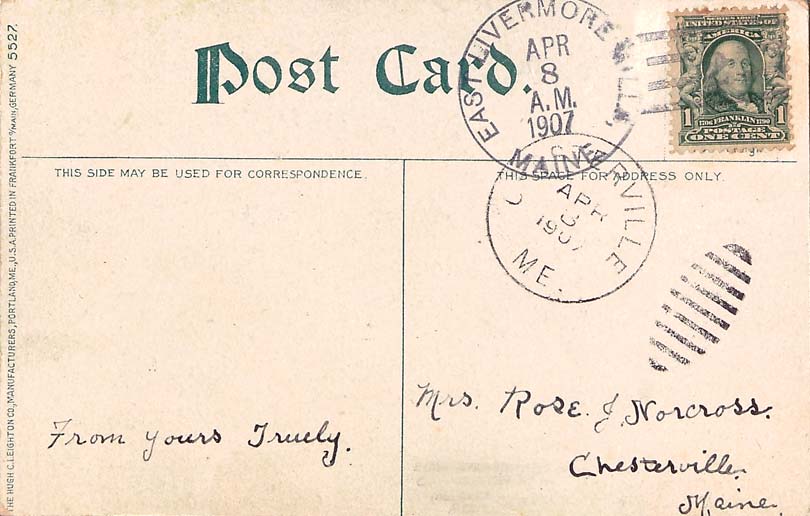 Post Card.
EAST LIVERMORE MILLS,
APR
8
A.M.
1907
MAINE
SERIES 1902
UNITED STATES OF
AMERICA
1 1
1706 FRANKLIN 1790
POSTAGE
ONE CENT
THIS SIDE MAY BE USED FOR CORRESPONDENCE.
THIS SPACE FOR ADDRESS ONLY.
ERVILLE
APR
1907
ME.
From yours Truely.
Mrs. Rose. J. Norcross.
Chesterville.
Maine.
THE HUGH C. LEIGHTON CO., MANUFACTURERS, PORTLAND, ME., U.S.A. PRINTED IN FRANKFORT o/MAIN, GERMANY 5527.